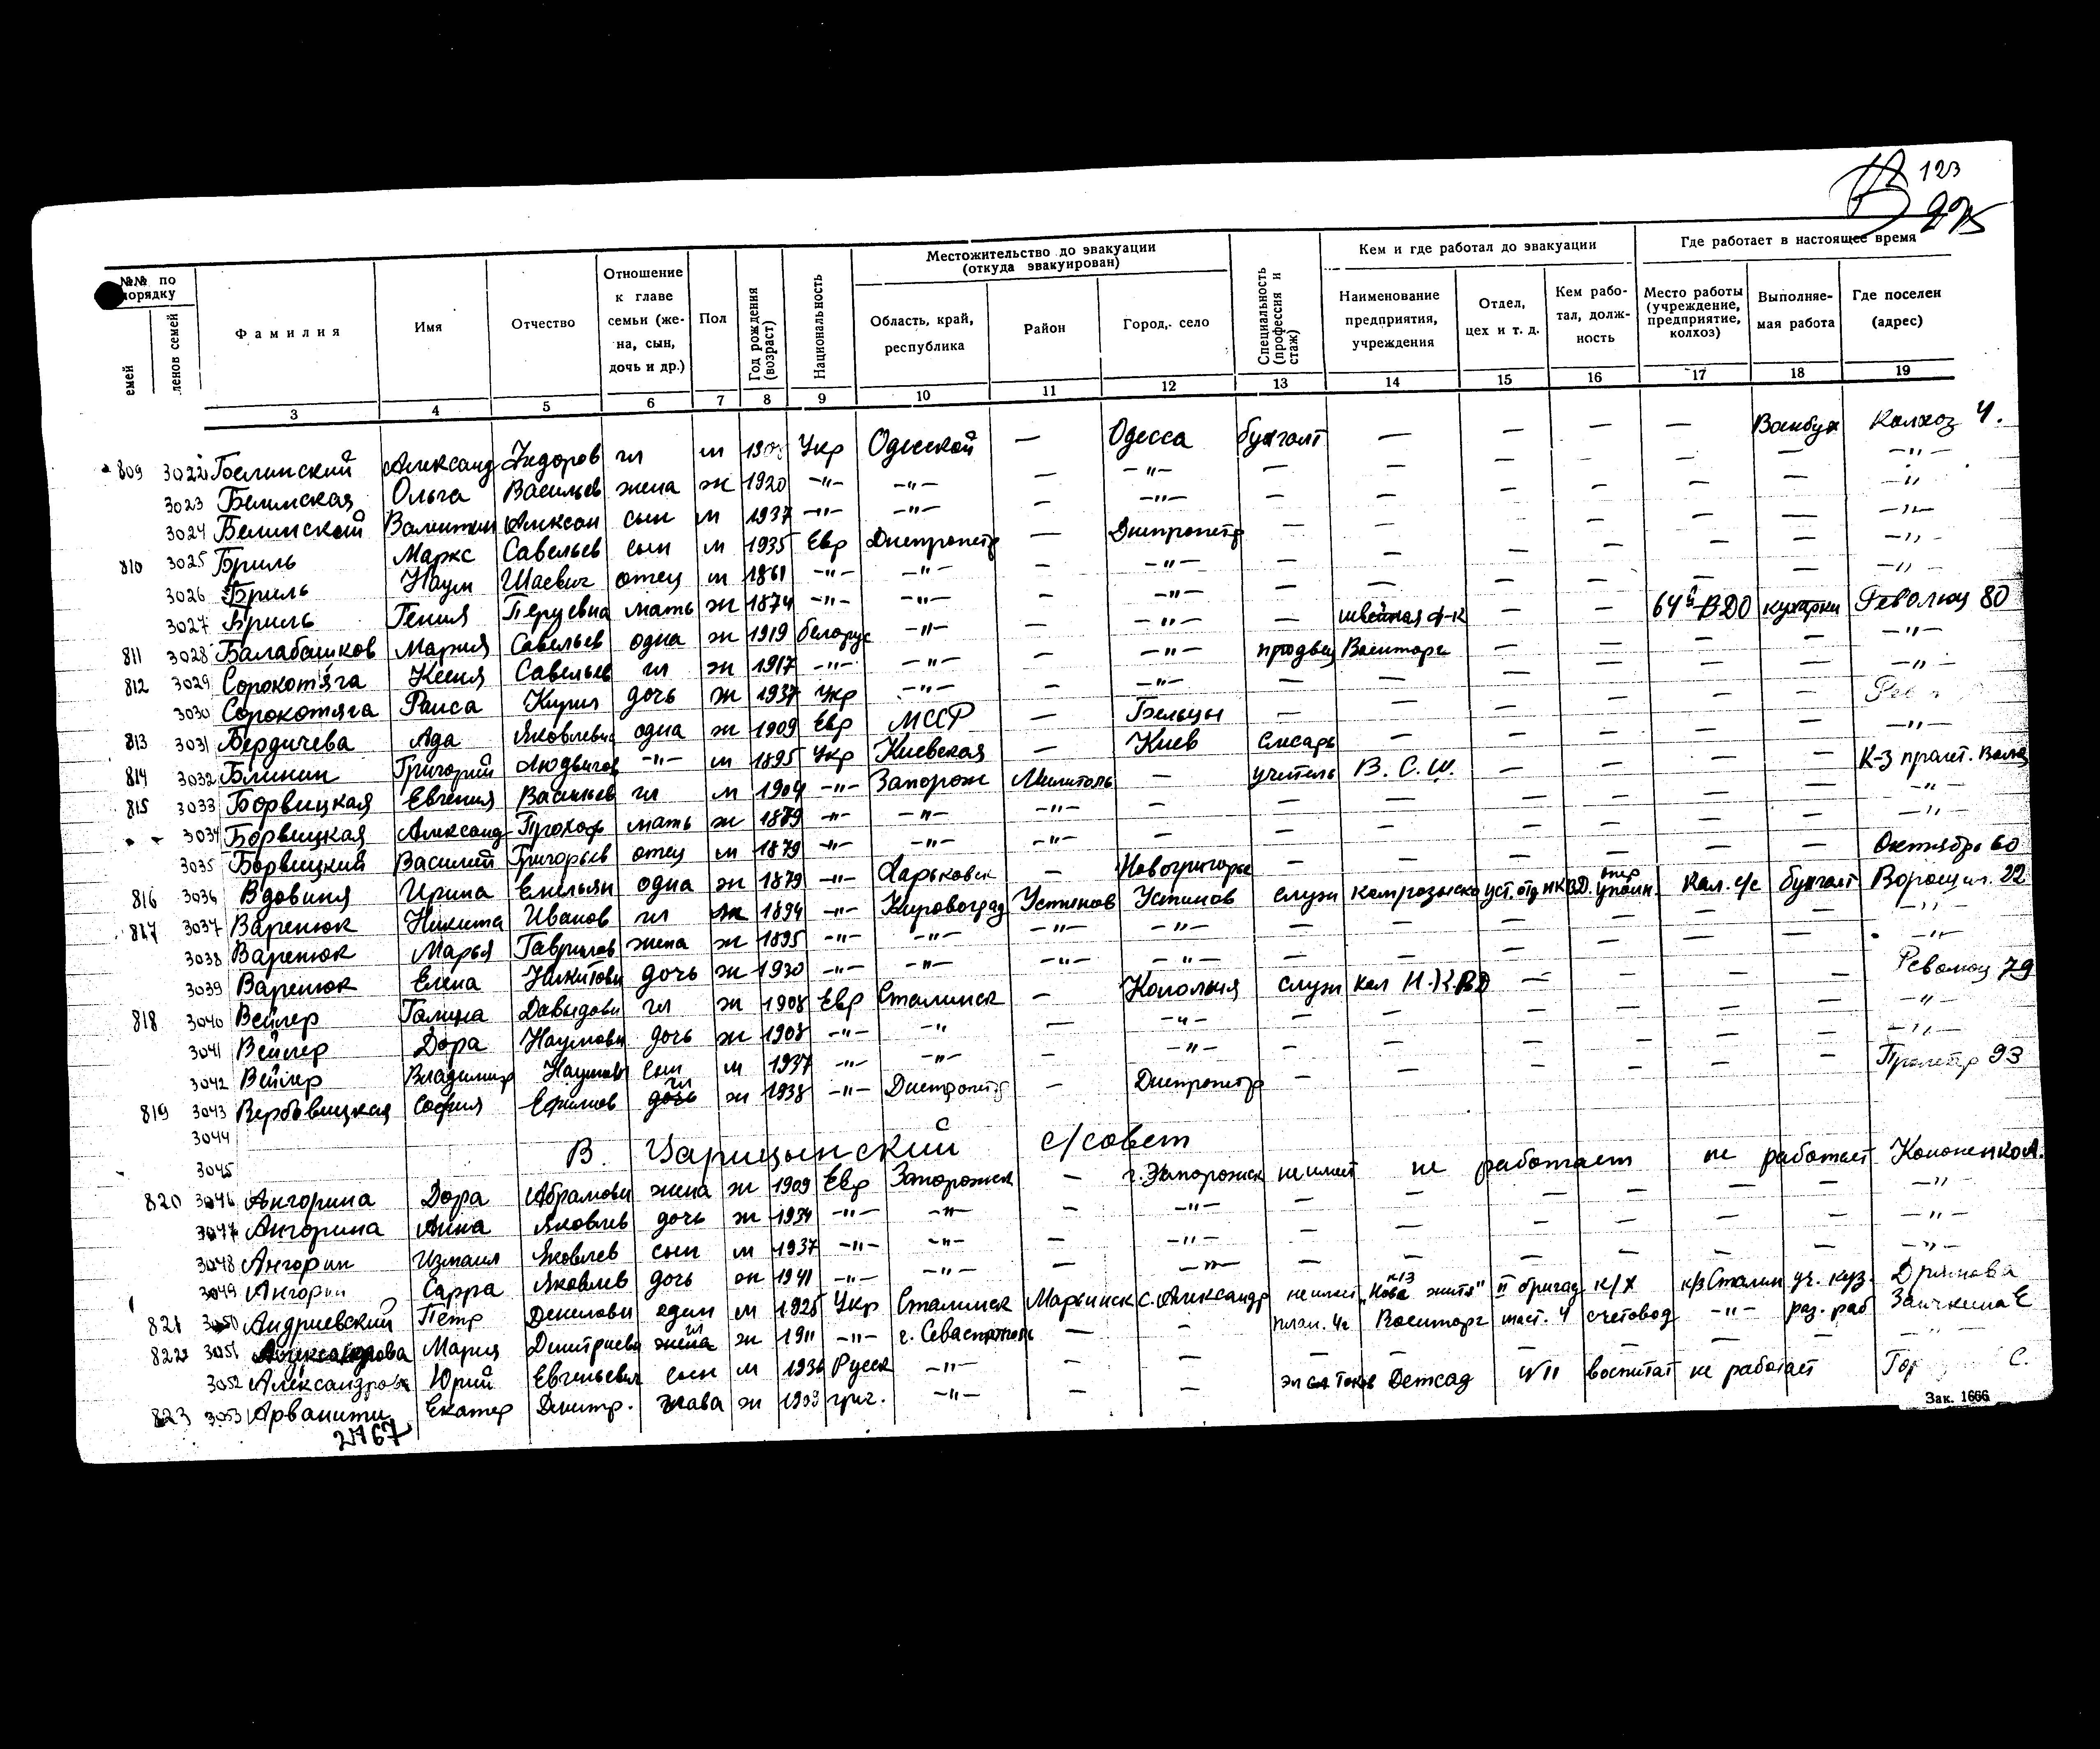 123
275
№№ по порядку
емей
ленов семей
Фамилия
Имя
Отчество
Отношение к главе семьи (жена, сын, дочь и др.)
Пол
Год рождения (возраст)
Национальность
Местожительство до эвакуации (откуда эвакуирован)
Область, край, республика
Район
Город, село
Специальность (профессия и стаж)
Кем и где работал до эвакуации
Наименование предприятия, учреждения
Отдел, цех и т. д.
Кем работал, должность
Где работает в настоящее время
Место работы (учреждение, предприятие, колхоз)
Выполняемая работа
Где поселен (адрес)
3 4 5 6 7 8 9 10 11 12 13 14 15 16 17 18 19
809 3022 Белинский Александ Федоров гл м Укр Одесской — Одесса бухгалт — — — — Колхоз
3023 Белинская Ольга Васильев жена ж 1920 -"- -"- — -"- — — — — — — -"-
3024 Белинский Валентин Алексан сын м 1937 -"- -"- — -"- — — — — — — -"-
810 3025 Бриль Маркс Савельев сын м 1935 Евр Днепропетр — Днепропетр — — — — — — -"-
3026 Бриль Наум Шаевич отец м 1861 -"- -"- — -"- — — — — — — -"-
3027 Бриль Гения Перцевна мать ж 1874 -"- -"- — -"- — — — — — — -"-
811 3028 Балабашков Мария Савельев одна ж 1919 белорус -"- — -"- — швейная ф-к — — 64 кухарки Революц 80
812 3029 Сорокотяга Ксения Савельев гл ж 1917 -"- -"- — -"- продвец Военторг — — — — -"-
3030 Сорокотяга Раиса Кирил дочь ж 1937 Укр -"- — -"- — — — — — — -"-
813 3031 Бердичева Ада Яковлевна одна ж 1909 Евр МССР — Бельцы — — — — — —
814 3032 Блинин Григорий Людвигов -"- м 1895 Укр Киевская — Киев Слесарь — — — — — -"-
815 3033 Борвицкая Евгения Васильев гл м 1904 -"- Запорож — учитель В. С. Ш. — — — — К-з пролет.
3034 Борвицкая Александ Прокоф мать ж 1879 -"- -"- -"- — — — — — — — -"-
3035 Борвицкий Василий Григорьев отец м 1879 -"- -"- -"- — — — — — — — -"-
816 3036 Вдовиня Ирина Емельян одна ж 1879 -"- Харьковск — — — — — — — Октябрь 60
817 3037 Варенюк Никита Иванов гл 1894 -"- Кировоград Устинов Устинов служ Кол. с/с бухгалт Ворошил. 22
3038 Варенюк Марья Гаврилов жена ж 1895 -"- -"- -"- -"- — — — — — — -"-
3039 Варенюк Елена Никитови дочь ж 1930 -"- -"- -"- -"- — — — — — — -"-
818 3040 Вейлер Галина Давыдови гл ж 1908 Евр Сталинск — служ — — — — Революц 79
3041 Вейлер Дора Наумови дочь ж 1908 -"- -"- — -"- — — — — — — -"-
3042 Вейлер Владимир Наумов сын м 1937 -"- -"- — -"- — — — — — — -"-
819 3043 Вербовицкая София Ефимов гл ж 1938 -"- Днепропетр — Днепропетр — — — — — — Пролетар 93
3044
3045 В. Царицынский с/совет
820 3046 Ангорина Дора Абрамови жена ж 1909 Евр Запорожск — г. Запорожск не имеет не работает не работает Кононенко А.
3047 Ангорина Анна Яковлев дочь ж 1934 -"- -"- — -"- — — — — — — -"-
3048 Ангорин Измаил Яковлев сын м 1937 -"- -"- — -"- — — — — — — -"-
3049 Ангорин Сарра Яковлев дочь ж 1941 -"- -"- — -"- — — — — — — -"-
821 3050 Андриевский Петр Денилови един м 1925 Укр Сталинск Марьинск с. Александр не имеет к/з "Нова життя" II бригад к/х к/з Сталин уч. куз.
822 3051 Александрова Мария Дмитриева гл ж 1911 -"- г. Севастополь — — Военторг счетовод -"- раз. раб Заичкина Е
3052 Александров Юрий Евгеньевич сын м 1936 Русск -"- — — — — — — — — -"-
823 3053 Арванити Екатер Дмитр. глава ж греч. -"- — — Детсад №11 воспитат не работает
2767
Зак. 1666